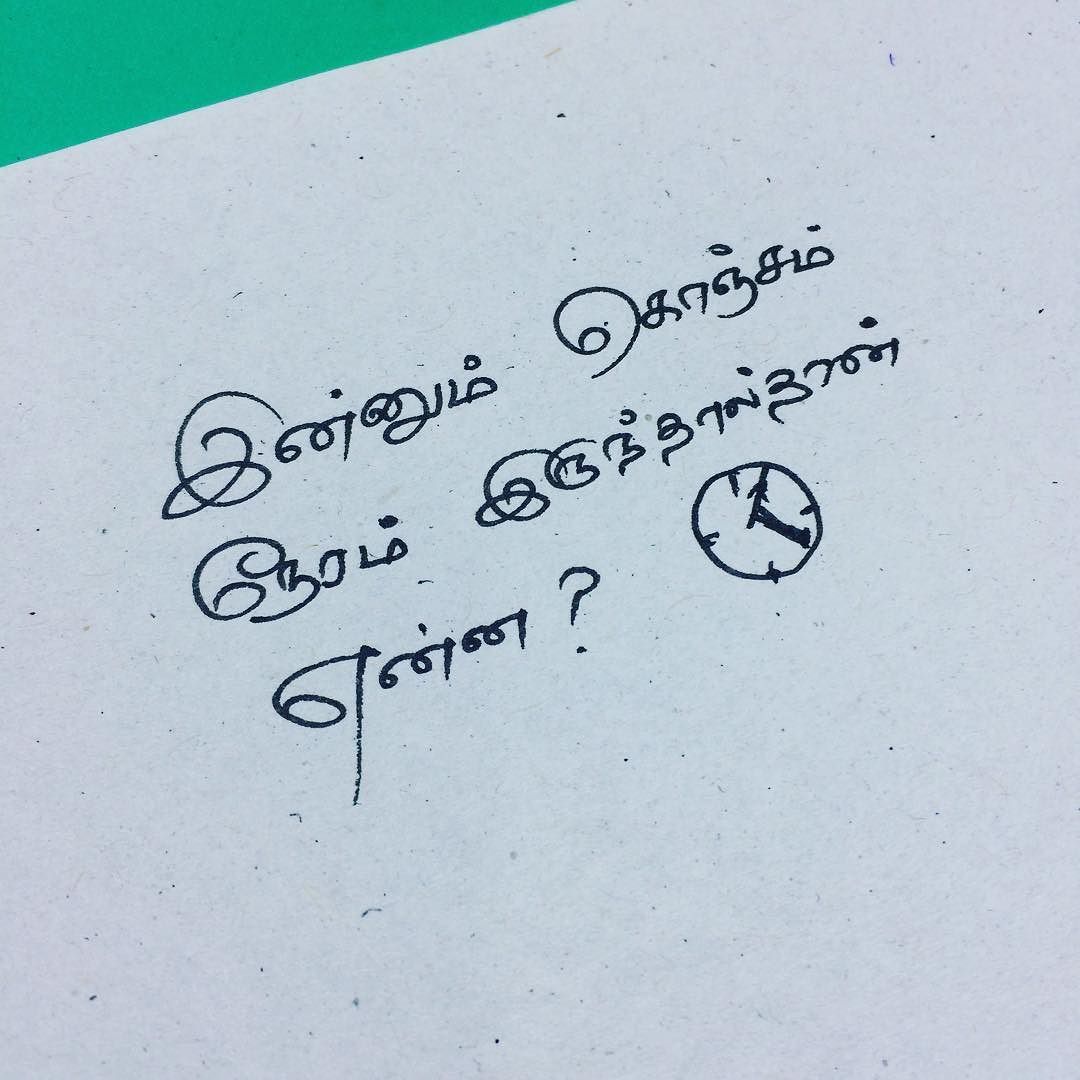 இன்னும் கொஞ்சம்
நேரம் இருந்தால்தான்
என்ன ?